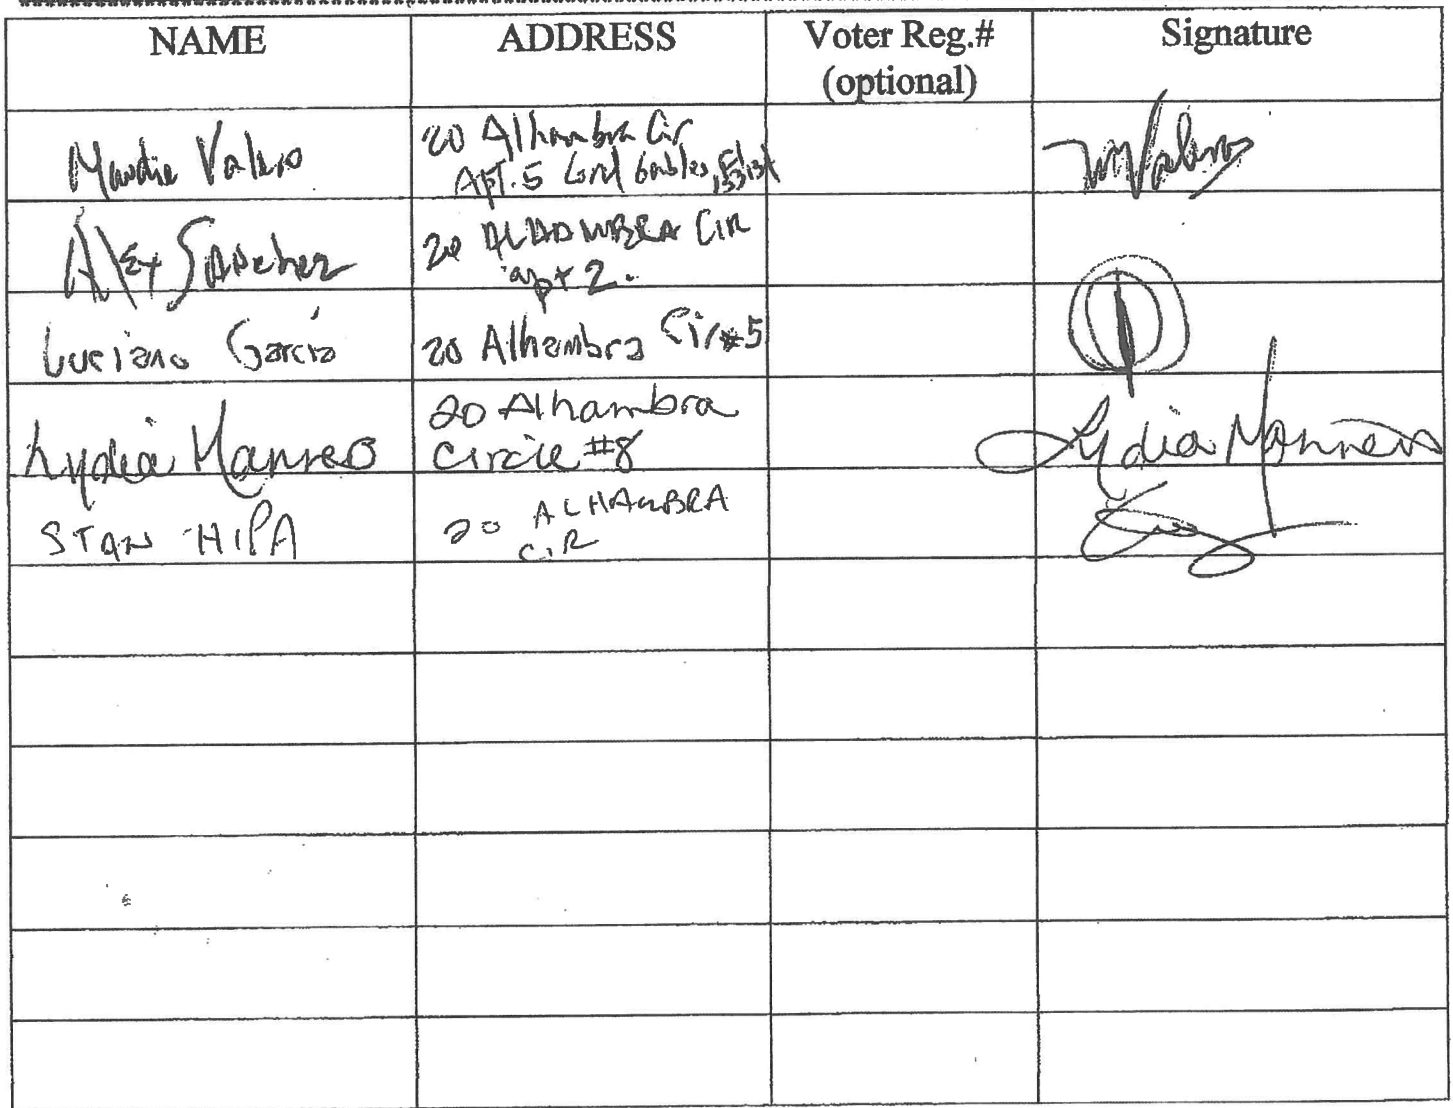 NAME ADDRESS Voter Reg.# Signature
(optional)
Valero 20 Alhambra Cir
Apt. 5 Coral Gables, Fl 33134
Alex Sanchez 20 ALHAMBRA CIR
apt 2.
Luciano García 20 Alhambra Cir #5
Lydia Manreo 20 Alhambra Lydia
Circle #8
STAN HIPA 20 ALHAMBRA
CIR